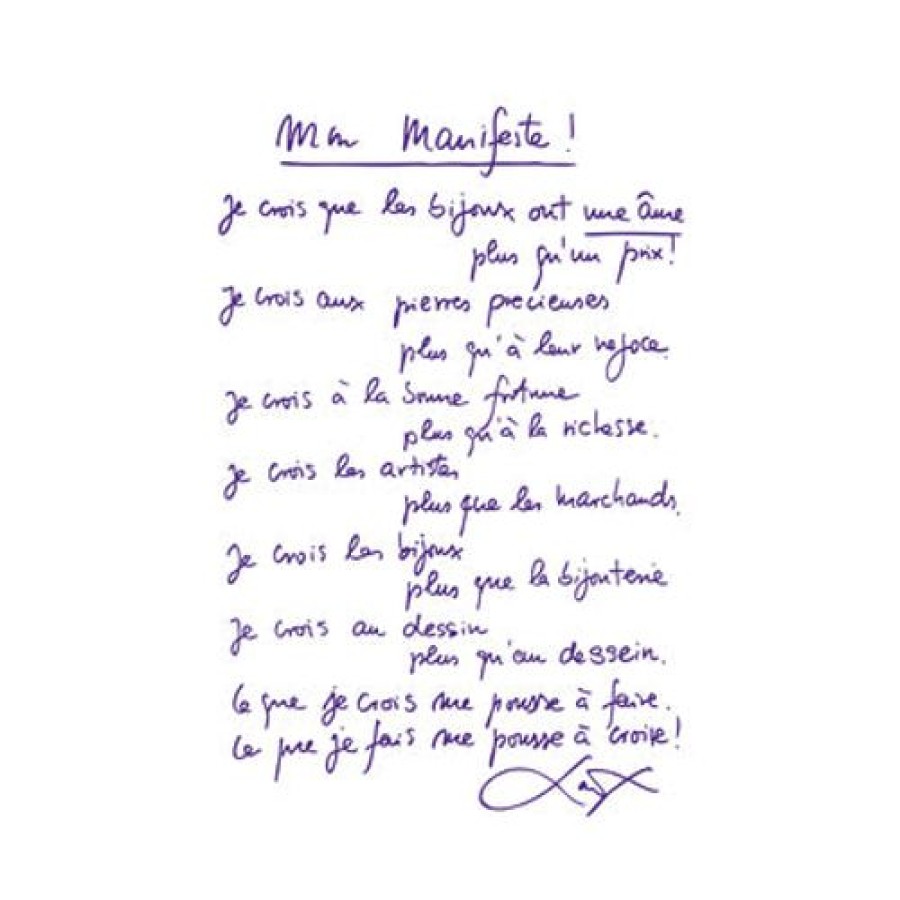 Mon Manifeste !
Je crois que les bijoux ont une âme
plus qu'un prix !
Je crois aux pierres précieuses
plus qu'à leur négoce.
Je crois à la bonne fortune
plus qu'à la richesse.
Je crois les artistes
plus que les marchands.
Je crois les bijoux
plus que la bijouterie
Je crois au dessin
plus qu'au dessein.
Ce que je crois me pousse à faire.
Ce que je fais me pousse à croire !